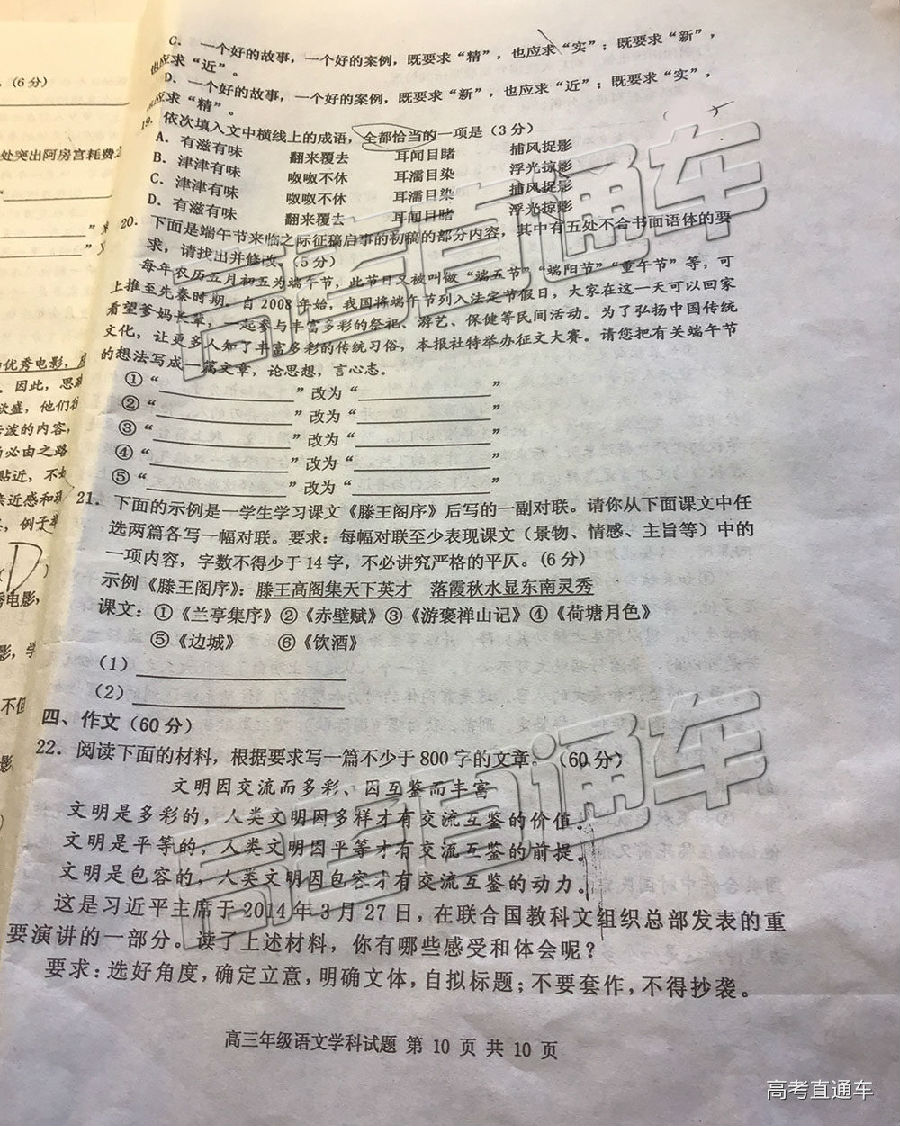 C. 一个好的故事，一个好的案例，既要求“精”，也应求“实”；既要求“新”，
也应求“近”。
D. 一个好的故事，一个好的案例，既要求“新”，也应求“近”；既要求“实”，
应求“精”。
19. 依次填入文中横线上的成语，全都恰当的一项是（3分）
A. 有滋有味 翻来覆去 耳闻目睹 捕风捉影
B. 津津有味 呶呶不休 耳濡目染 浮光掠影
C. 津津有味 呶呶不休 耳濡目染 捕风捉影
D. 有滋有味 翻来覆去 耳闻目睹 浮光掠影
20. 下面是端午节来临之际征稿启事的初稿的部分内容，其中有五处不合书面语体的要
求，请找出并修改。（5分）
每年农历五月初五为端午节，此节日又被叫做“端五节”“端阳节”“重午节”等，可
上推至先秦时期。自2008年始，我国将端午节列入法定节假日，大家在这一天可以回家
看望爹妈长辈，一起参与丰富多彩的祭祀、游艺、保健等民间活动。为了弘扬中国传统
文化，让更多人知了丰富多彩的传统习俗，本报社特举办征文大赛。请您把有关端午节
的想法写成一篇文章，论思想，言心志。
①“ ”改为“ ”
②“ ”改为“ ”
③“ ”改为“ ”
④“ ”改为“ ”
⑤“ ”改为“ ”
21. 下面的示例是一学生学习课文《滕王阁序》后写的一副对联。请你从下面课文中任
选两篇各写一幅对联。要求：每幅对联至少表现课文（景物、情感、主旨等）中的
一项内容，字数不得少于14字，不必讲究严格的平仄。(6分)
示例《滕王阁序》：滕王高阁集天下英才 落霞秋水显东南灵秀
课文：①《兰亭集序》②《赤壁赋》③《游褒禅山记》④《荷塘月色》
⑤《边城》 ⑥《饮酒》
(1)
(2)
四、作文(60分)
22. 阅读下面的材料，根据要求写一篇不少于800字的文章。（60分）
文明因交流而多彩、因互鉴而丰富
文明是多彩的，人类文明因多样才有交流互鉴的价值。
文明是平等的，人类文明因平等才有交流互鉴的前提。
文明是包容的，人类文明因包容才有交流互鉴的动力。
这是习近平主席于2014年3月27日，在联合国教科文组织总部发表的重
要演讲的一部分。读了上述材料，你有哪些感受和体会呢？
要求：选好角度，确定立意，明确文体，自拟标题；不要套作，不得抄袭。
高三年级语文学科试题 第 10 页 共 10 页
(6分)
处突出阿房宫耗费
优秀电影，
因此，思
欲盛，他们
渡的内容，
必由之路
贴近，不
亲近感和
例于
D
电影，
影，学
不但
影
高考直通车
高考直通车
高考直通车